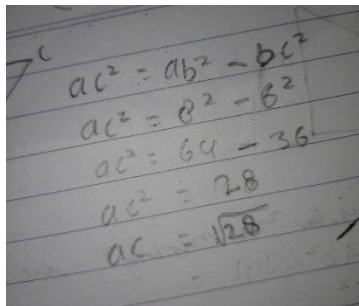 c
ac² = ab² - bc²
ac² = 8² - 6²
ac² = 64 - 36
ac² = 28
ac = √28